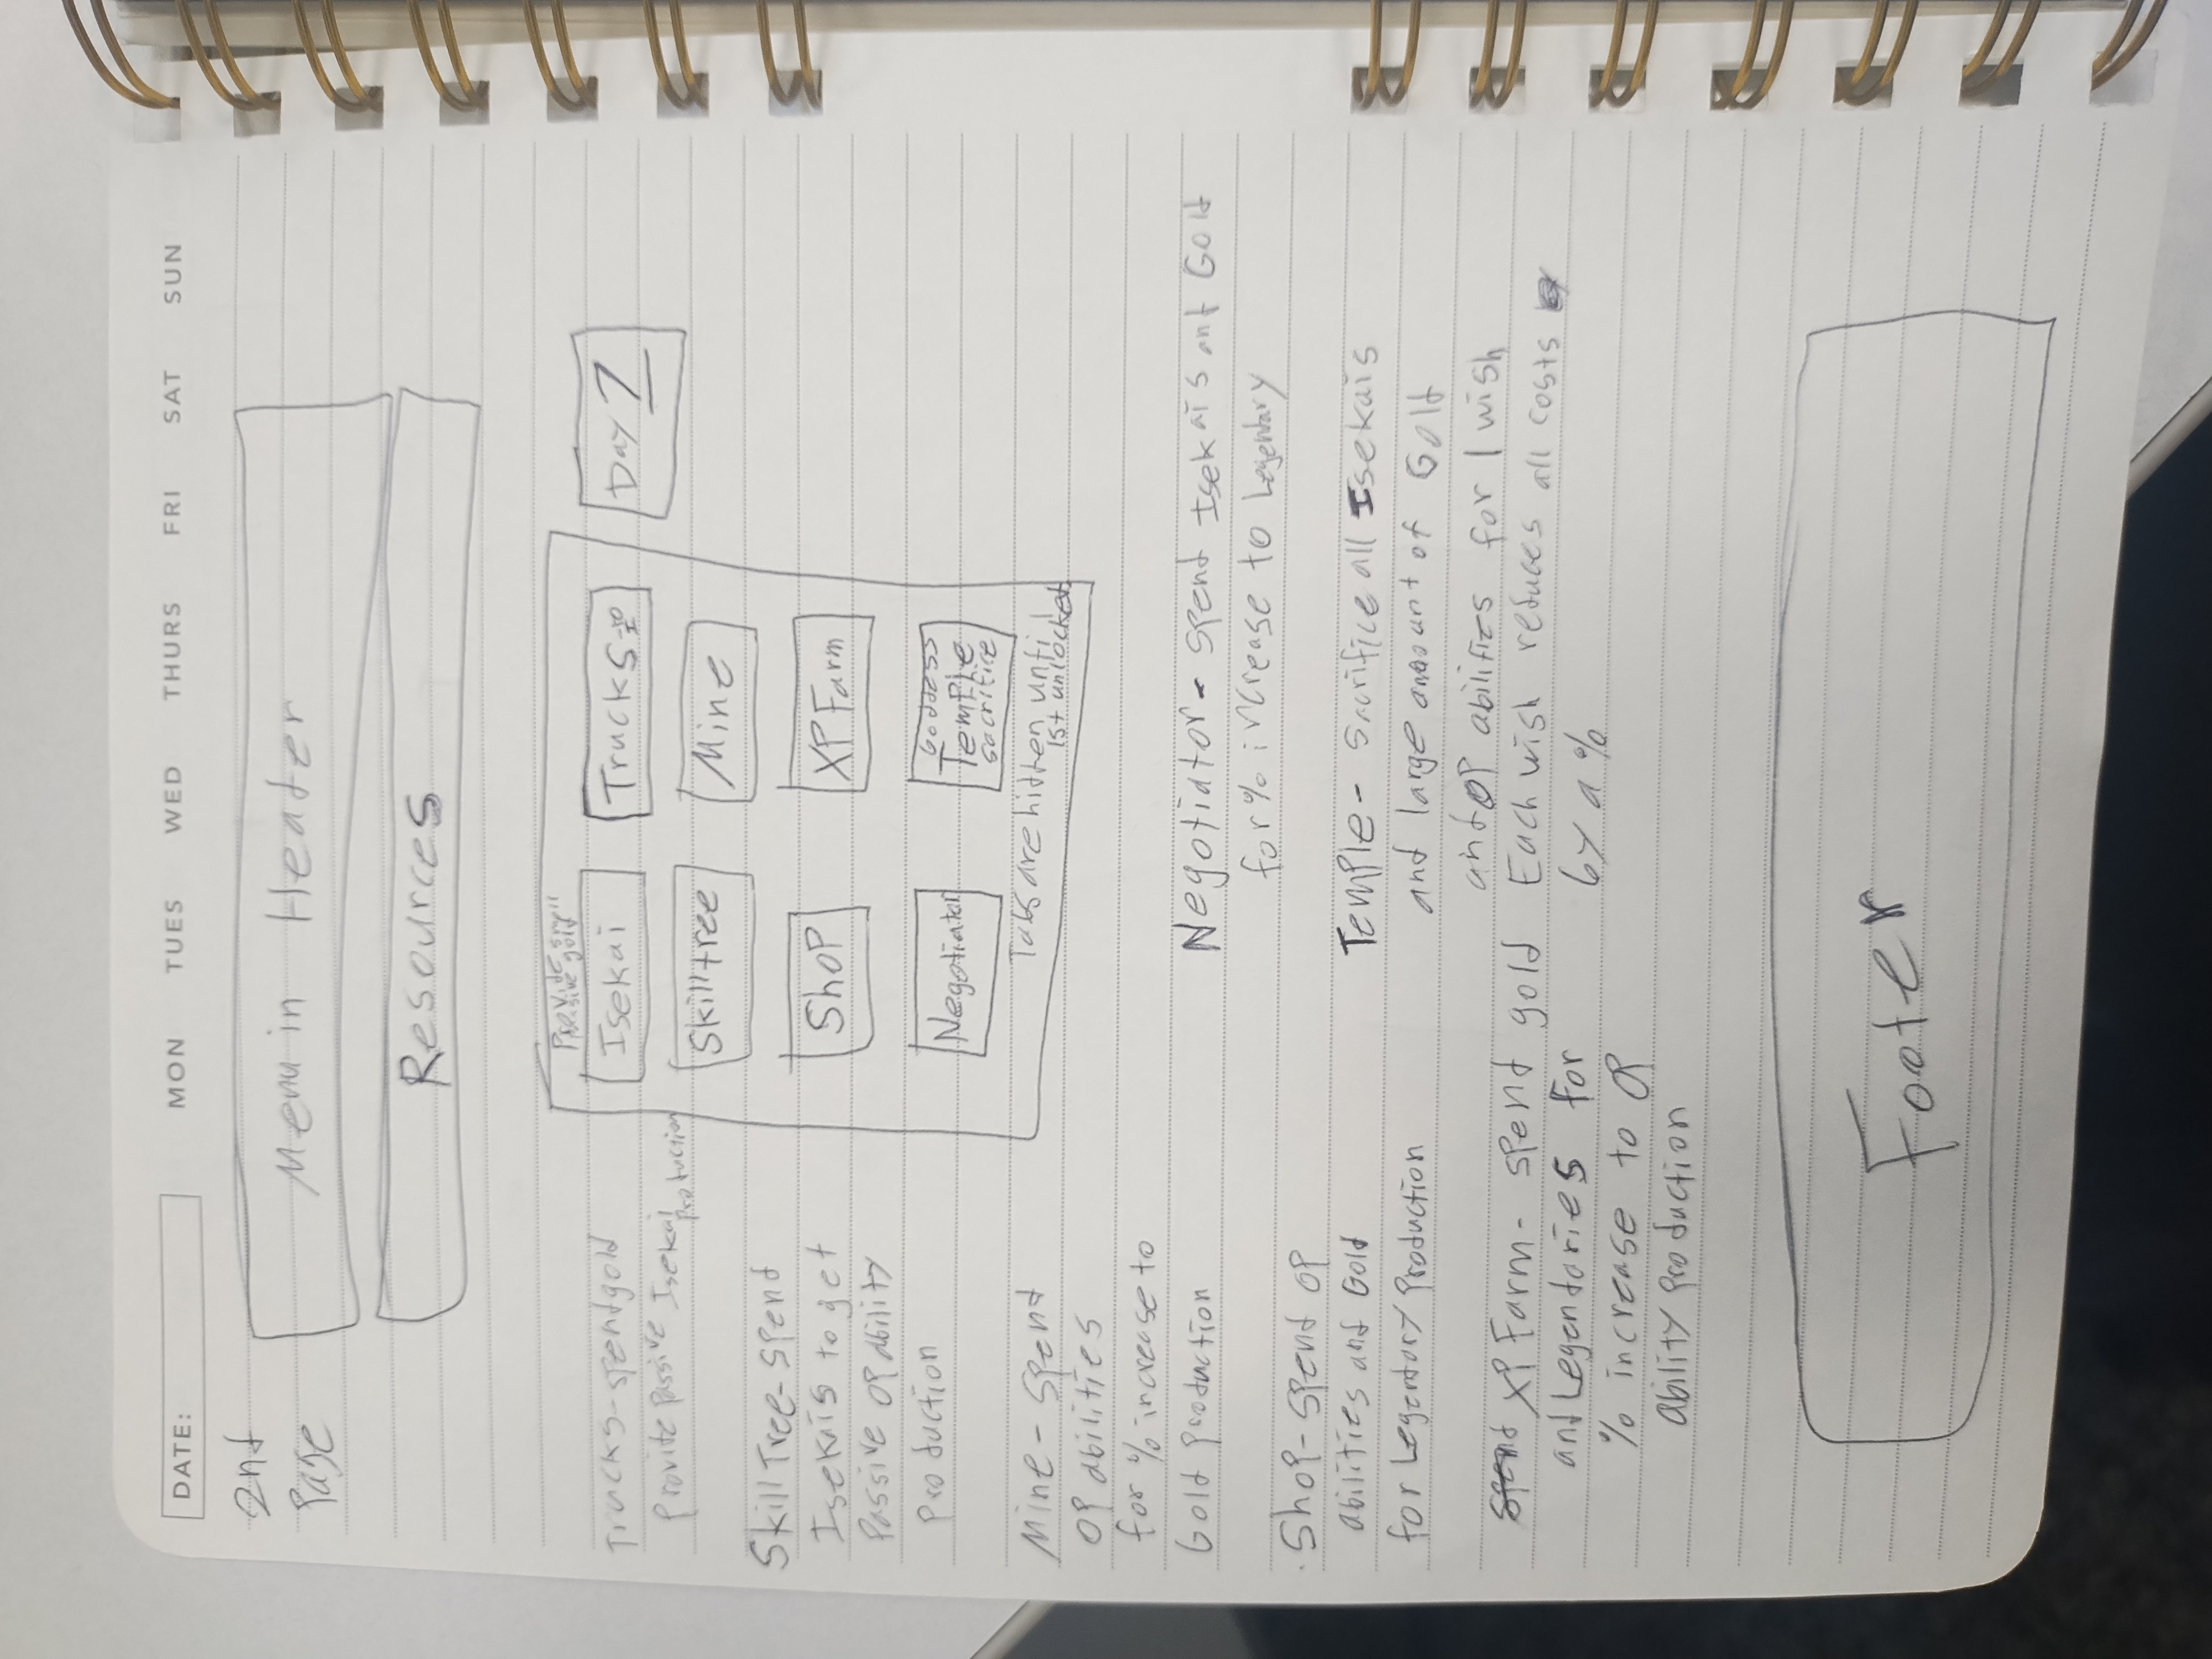 DATE:
MON TUES WED THURS FRI SAT SUN
2nd
Page
Menu in Header
Resources
Provide small
passive gold
Isekai
Trucks
Day 1
Skilltree
Mine
Shop
XP Farm
Negotiator
Goddess
Temple
sacrifice
Tabs are hidden until
1st unlocked
Trucks-spend gold
Provide Passive Isekai
Production
Skill Tree- Spend
Isekais to get
Passive OP ability
Production
Mine - Spend
OP abilities
for % increase to
Gold Production
Shop- Spend OP
abilities and Gold
for Legendary Production
XP Farm- spend gold
and Legendaries for
% increase to OP
ability production
Negotiator- Spend Isekais and Gold
for % increase to Legendary
Temple- Sacrifice all Isekais
and large amount of Gold
and OP abilities for 1 wish
Each wish reduces all costs
by a %
Footer